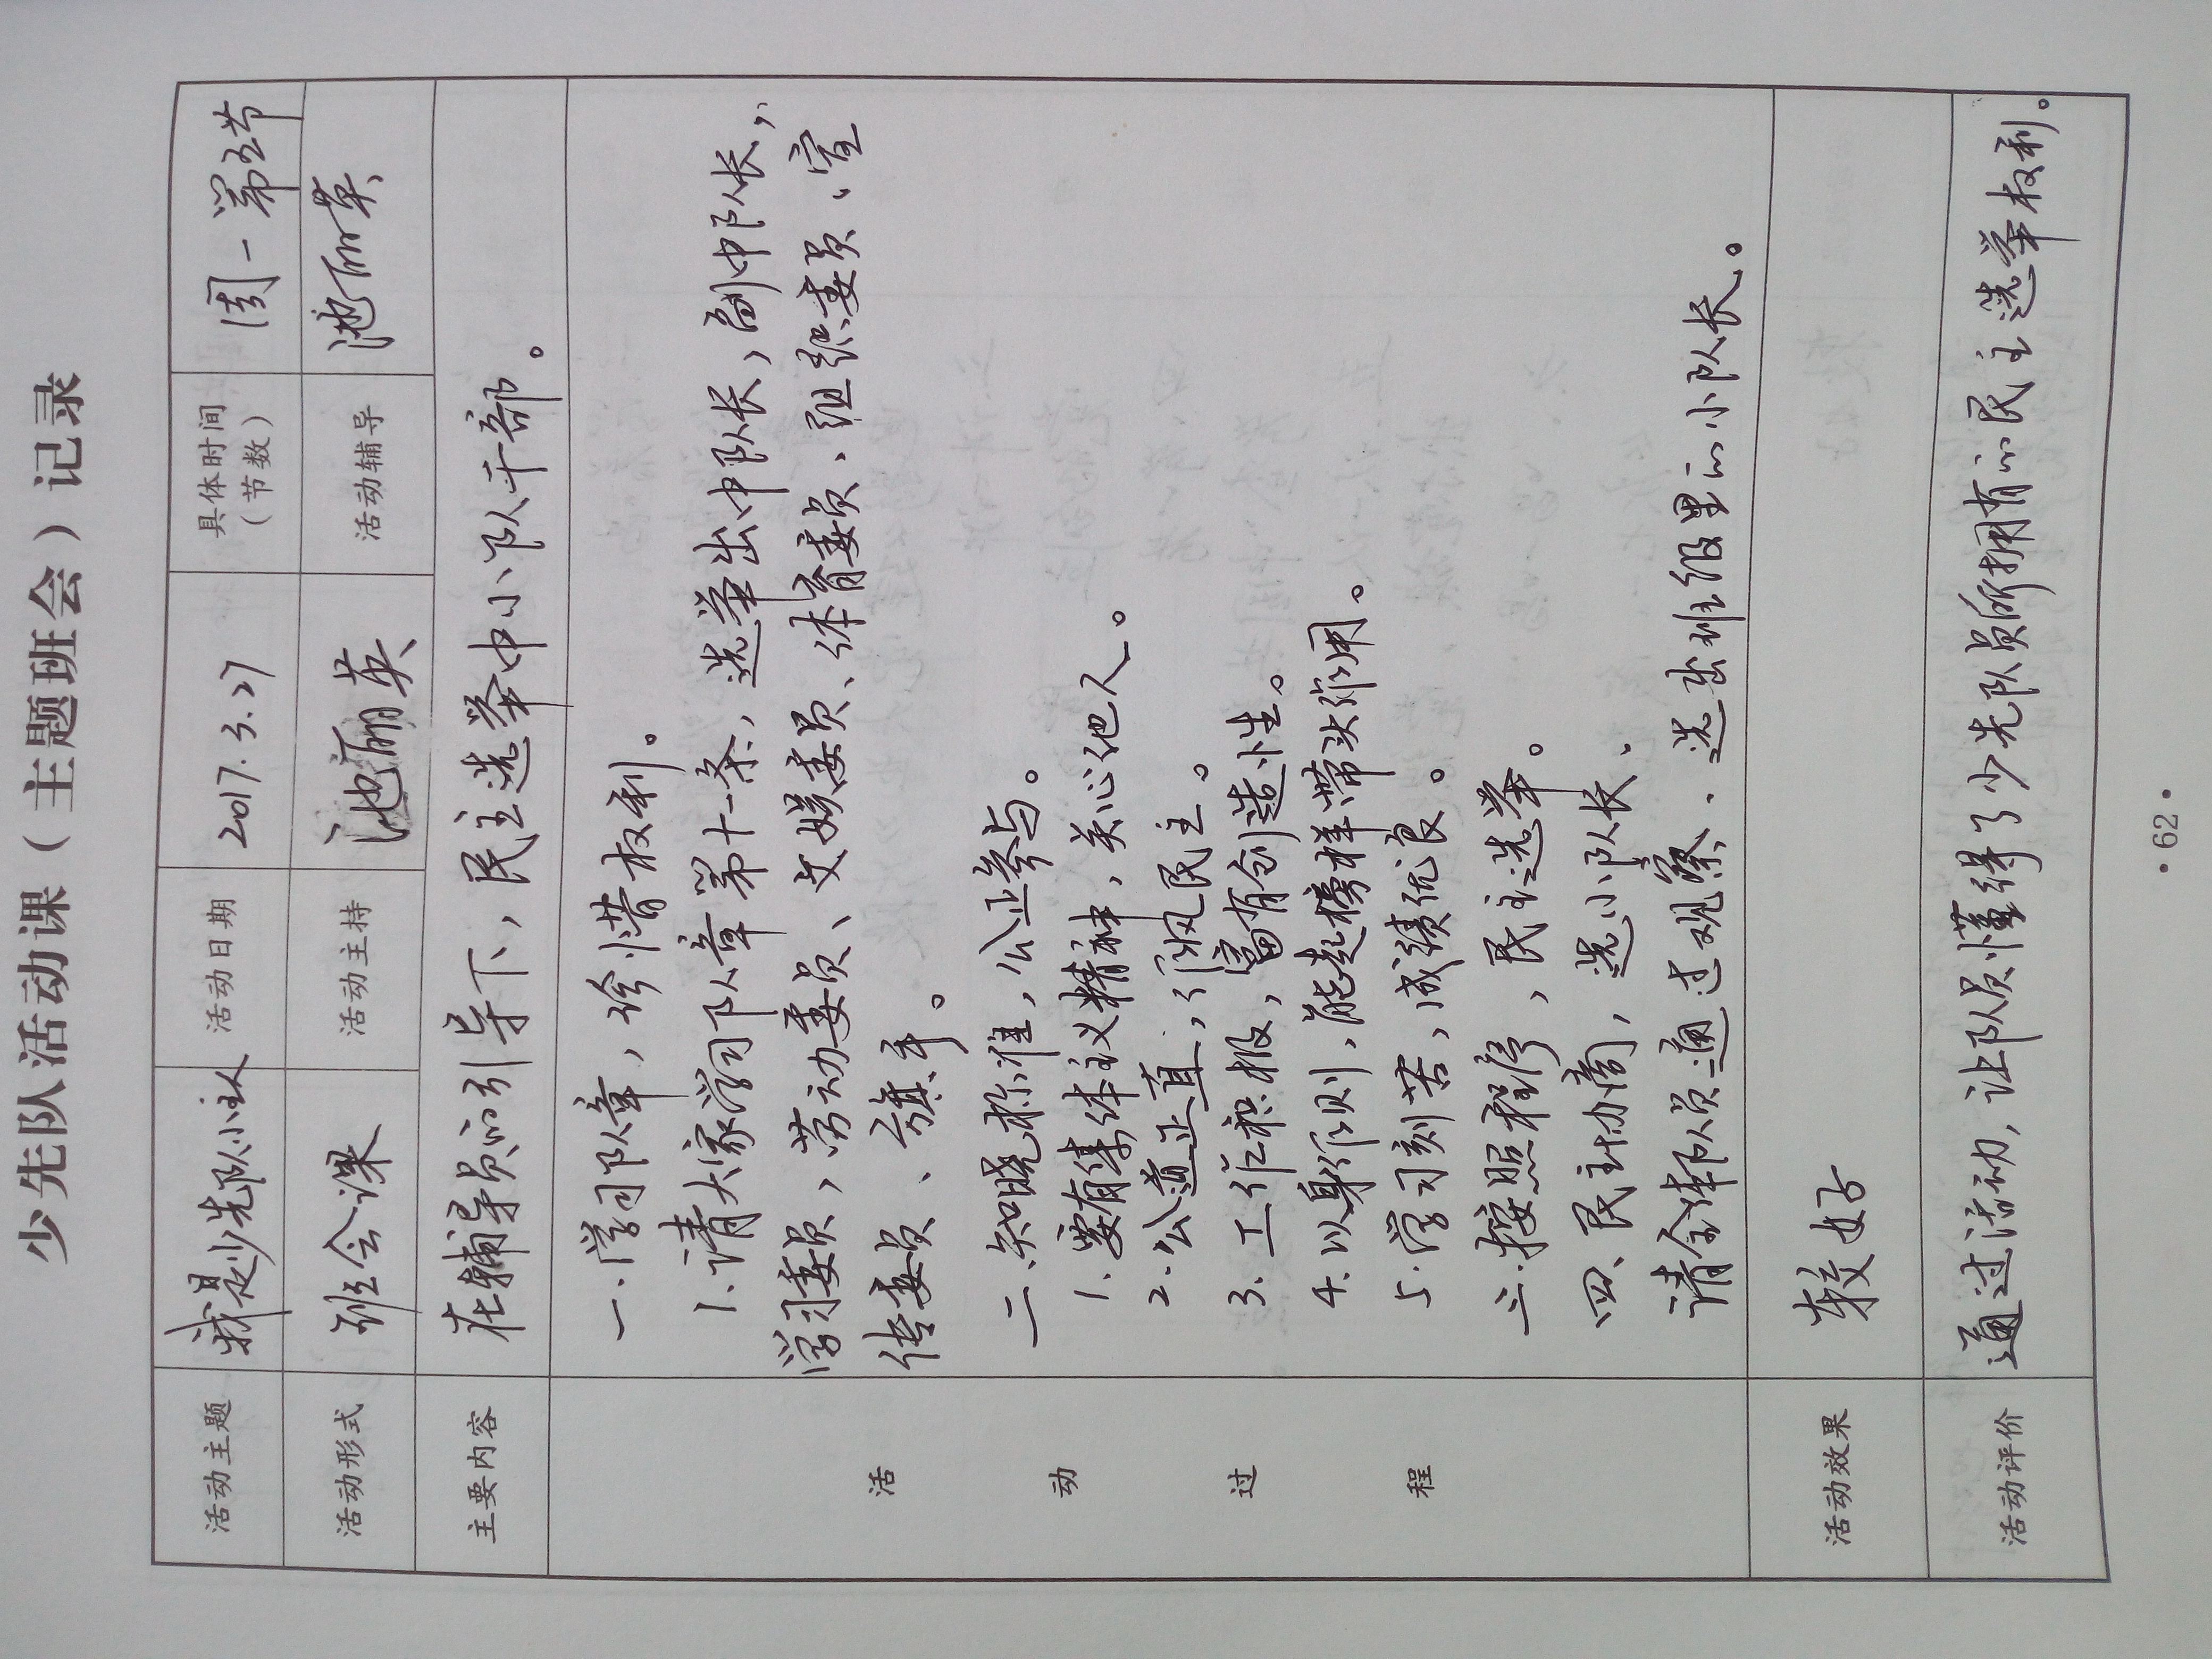 少先队活动课（主题班会）记录
活动主题 我是少先队小主人 活动日期 2017.3.27 具体时间（节数） 周一第五节
活动形式 班会课 活动主持 池丽英 活动辅导 池丽英
主要内容 在辅导员的引导下，民主选举中小队干部。
活动过程
一.学习队章，珍惜权利。
1.请大家学习队章第十一条，选举出中队长，副中队长，
学习委员，劳动委员、文娱委员、体育委员、组织委员、宣
传委员、旗手。
二.知晓标准，公正参与。
1.要有集体主义精神，关心他人。
2.公道正直，作风民主。
3.工作积极，富有创造性。
4.以身作则，能起榜样带头作用。
5.学习刻苦，成绩优良。
三.按照程序，民主选举。
四、民主协商，选小队长、
请全体队员通过观察、选出班级里的小队长。
活动效果 较好
活动评价 通过活动，让队员懂得了少先队员所拥有的民主选举权利。
·62·